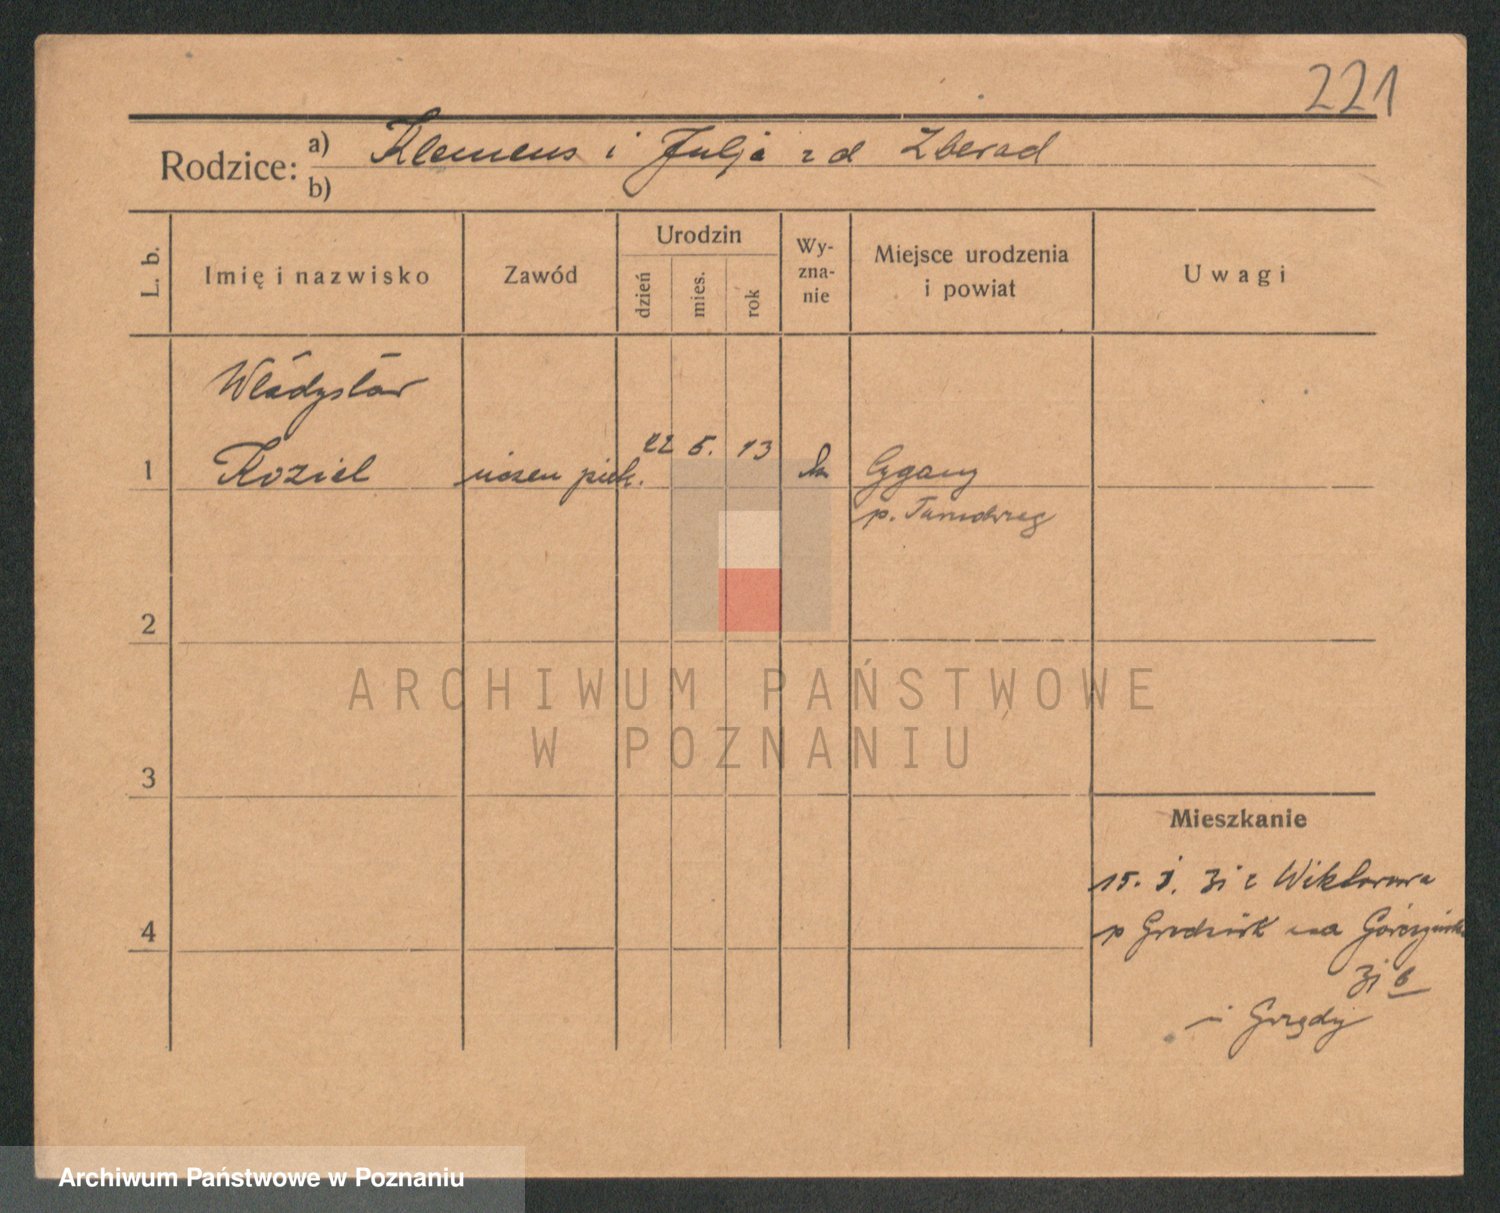 221
Rodzice: a) Klemens i Julja z d Zberad
b)
L. b.
Imię i nazwisko
Zawód
Urodzin
dzień
mies.
rok
Wy-
zna-
nie
Miejsce urodzenia
i powiat
Uwagi
Władysław
1 Kozieł uczeń piek. 22 5. 13 Cygany
p. Tarnobrzeg
2
ARCHIWUM PAŃSTWOWE
W POZNANIU
3
Mieszkanie
15. I. 31 z Wiktorowa
4 p Grodzisk na
31 6
Archiwum Państwowe w Poznaniu